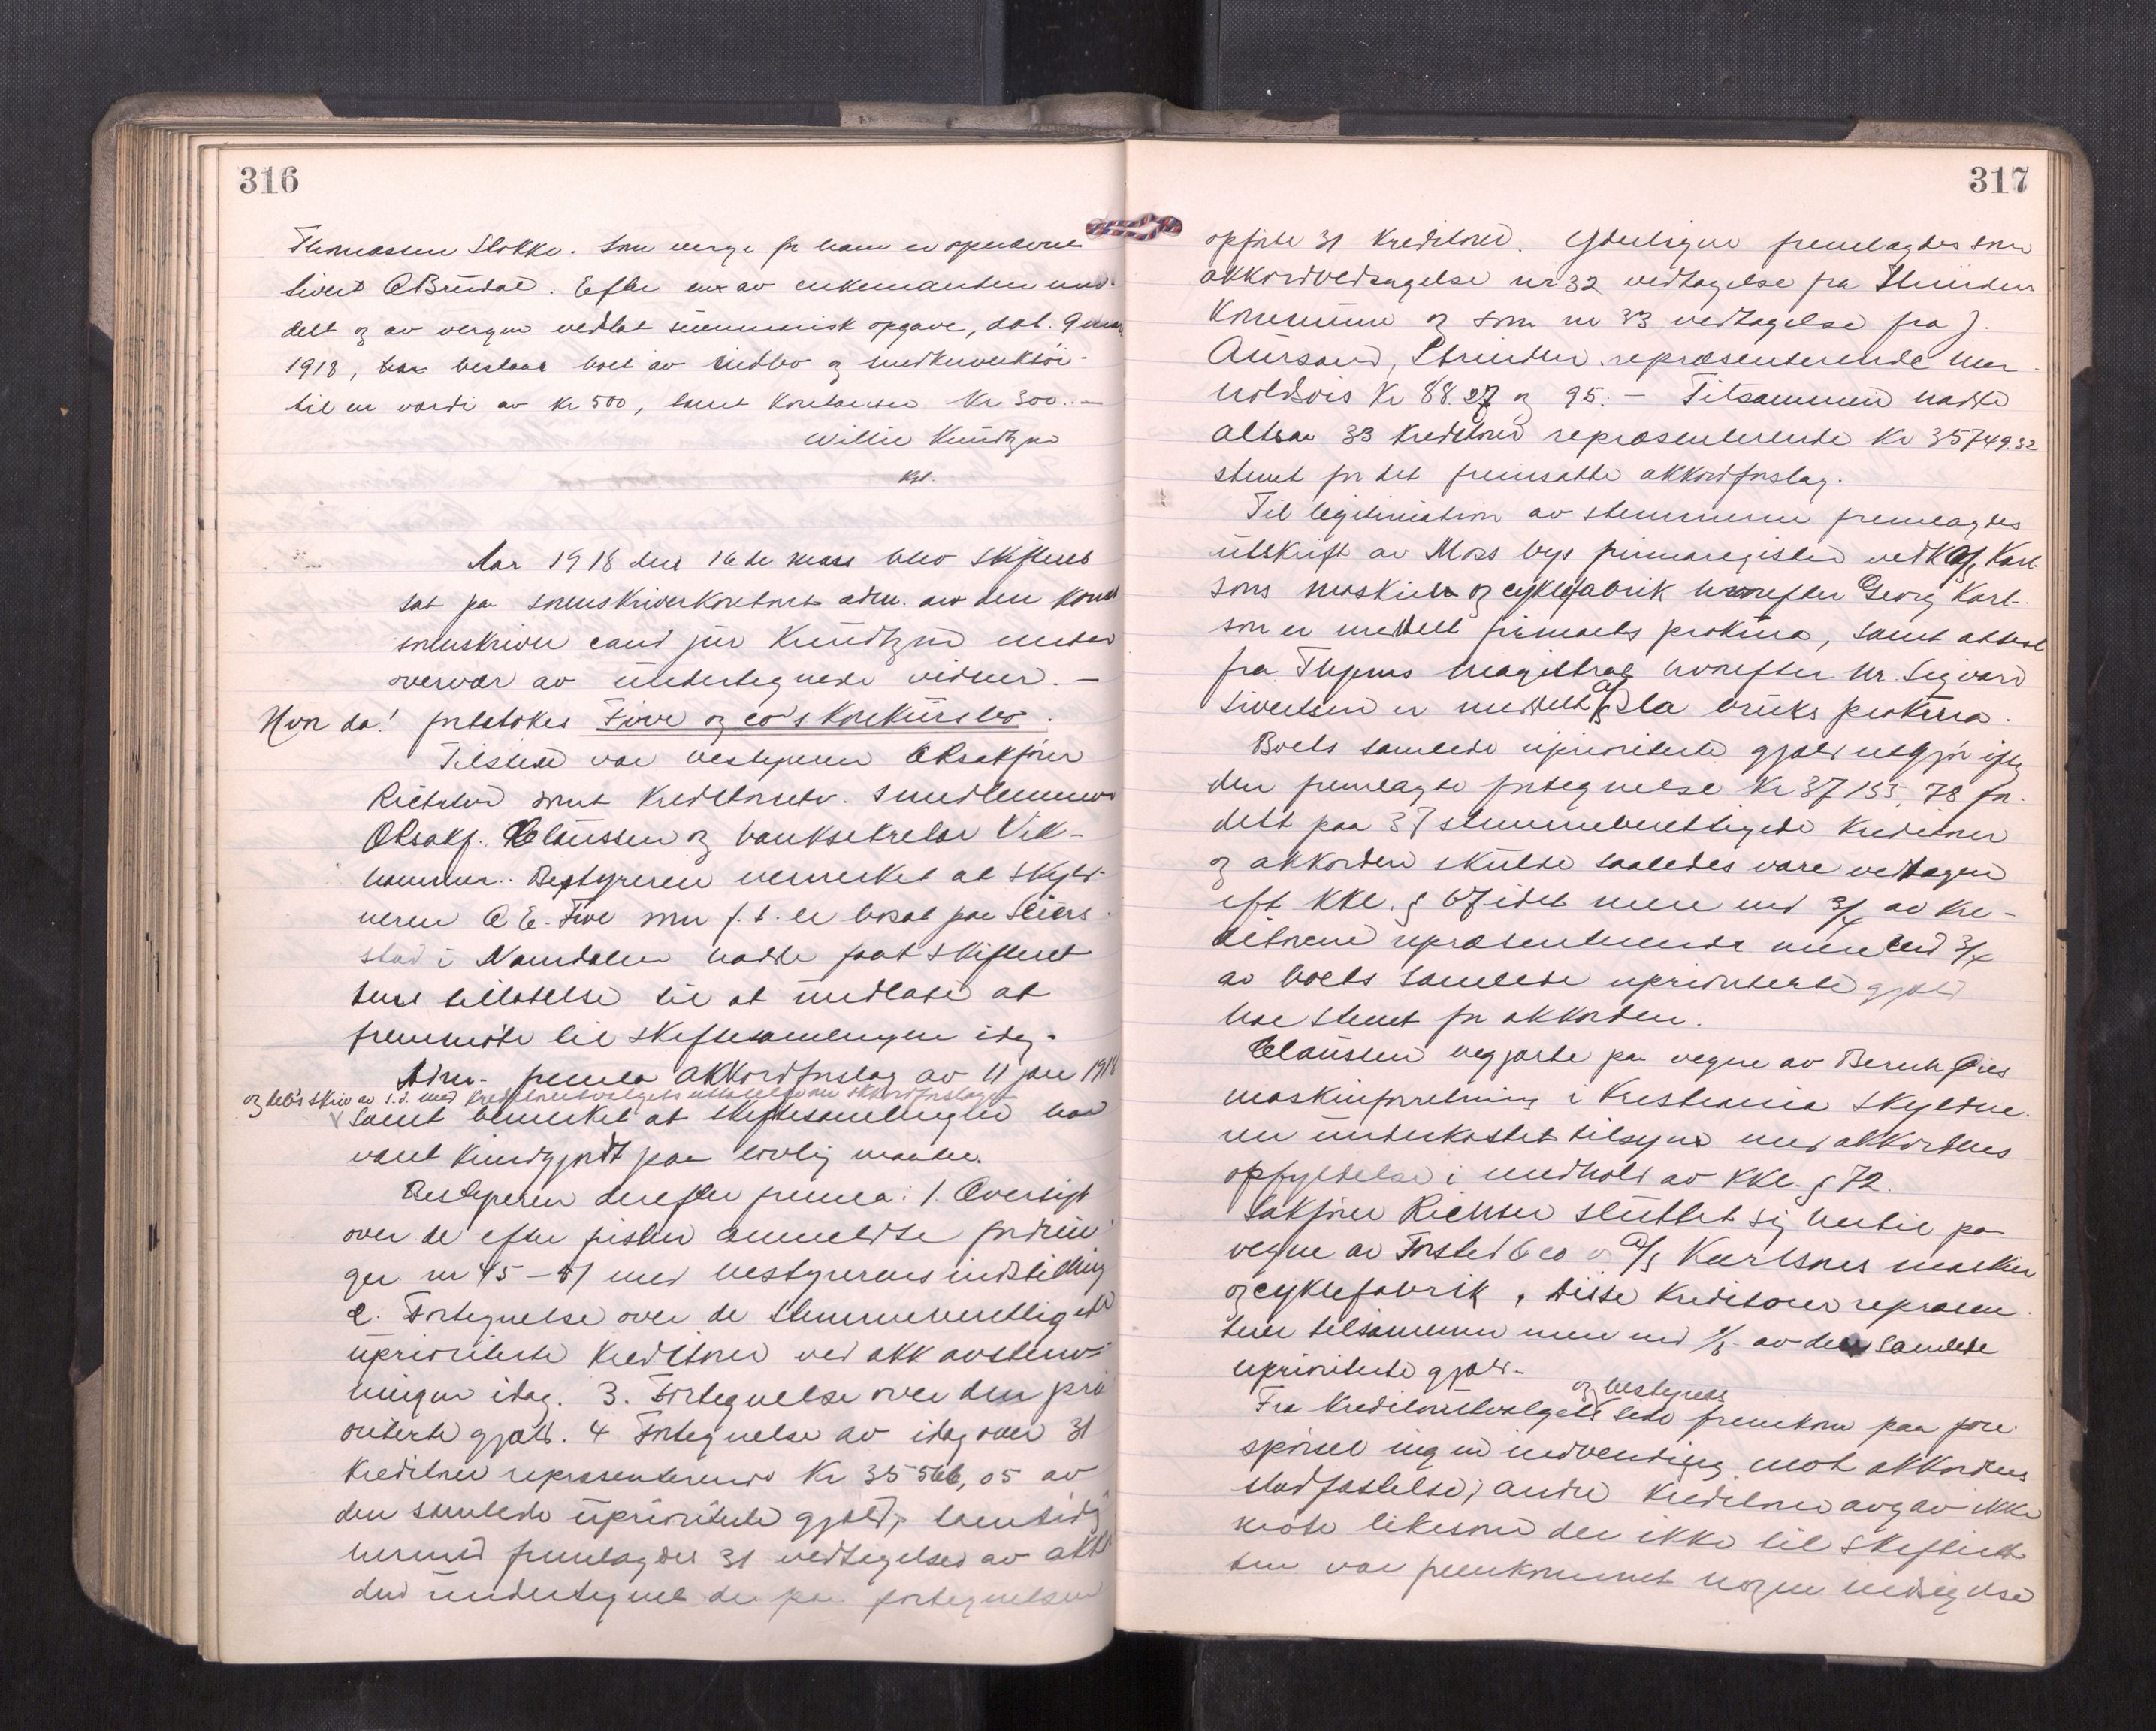 316
Thomassen Slokke. Som verge for ham er opnævnt
Sivert O Brudal. Efter en av enkemanden med-
delt og av vergen vedtat summarisk opgave, dat. 9 mars
1918, bestaar boet av indbo og snedkerverktøi
til en værdi av kr 500, samt kontanter kr 300.-
Willie Knudtzon
kst.
Aar 1918 den 16de mars blev skifteret
sat paa sorenskriverkontoret adm. av den konst
sorenskriver cand jur Knudtzon under
overvær av undertegnede vidner. -
Hvor da! foretokes Five og co's konkursbo.
Tilstede var bestyreren ORsakfører
Richter samt kreditorutv.s medlemmer
ORsakf. Claussen og banksekretær Vik-
hammer. Bestyreren bemerket at skyld-
neren O E. Five som f. t. er bosat paa
i Namdalen hadde faat skifterettens
tillatelse til at undlate at
fremmøte til skiftesamlingen idag.
Adm. fremla akkordforslag av 11 jan 1918
og dets skriv av s.d. med kreditorutvalgets uttalelse om akkordforslaget
samt bemerket at skiftesamlingen har
været kundgjordt paa lovlig maate.
Bestyreren derefter fremla: 1. Oversigt
over de efter fristen anmeldte fordrin
ger nr 45 - 51 med bestyrerens indstilling
2. Fortegnelse over de stemmeberettigede
uprioriterte kreditorer ved akk avstem-
ningen idag. 3. Fortegnelse over den pri
oriterte gjæld. 4 Fortegnelse av idag over 31
kreditorer repræsenterende Kr 35566,05 av
den samlede uprioriterte gjæld, samtidig
hermed fremlagdes 31 vedtagelser av akkor
den undertegnet de paa fortegnelsen
317
opførte 31 kreditorer. Yderligere fremlagdes som
akkordvedtagelse nr 32 vedtagelse fra Strinden
Kommune og som nr 33 vedtagelse fra J.
Aursand, Strinden repræsenterende hen
holdsvis Kr 88.27 og 95.- Tilsammen hadde
altsaa 33 kreditorer repræsenterende Kr 35749.32
stemt for det fremsatte akkordforslag.
Til legitimation av stemmerne fremlagdes
utskrift av Moss bys firmaregister vedk A/s Karl
sons maskin og cyklefabrik hvorefter Georg Karl-
son er meddelt firmaets prokura, samt attest
fra Magistrat hvorefter hr. Sigvard
Sivertsen er meddelt A/s Sla bruks prokura.
Boets samlede uprioriterte gjæld utgjør efter
den fremlagte fortegnelse Kr 37155,78 for-
delt paa 37 stemmeberettigede kreditorer
og akkorden skulde saaledes være vedtagen
eft KKl. § 67 idet mere end 3/4 av kre-
ditorerne repræsenterende mere end 3/4
av boets samlede uprioriterte gjæld
har stemt for akkorden.
Claussen begjærte paa vegne av Bernh Øies
maskinforretning i Kristiania skyldne
ren underkastet tilsyn med akkordens
opfyldelse i medhold av KKl. § 72.
Sakfører Richter sluttet sig hertil paa
vegne av Forsted & co og A/s Karlsons maskin
og cyklefabrik. Disse kreditorer repræsen
terer tilsammen mere end 1/3 av den samlede
uprioriterte gjæld.
og bestyrers
Fra kreditorutvalgets side fremkom paa fore
spørsel ingen indvending mot akkordens
stadfæstelse; andre kreditorer avgav ikke
møte likesom der ikke til skifteret
ten var fremkommet nogen indsigelse